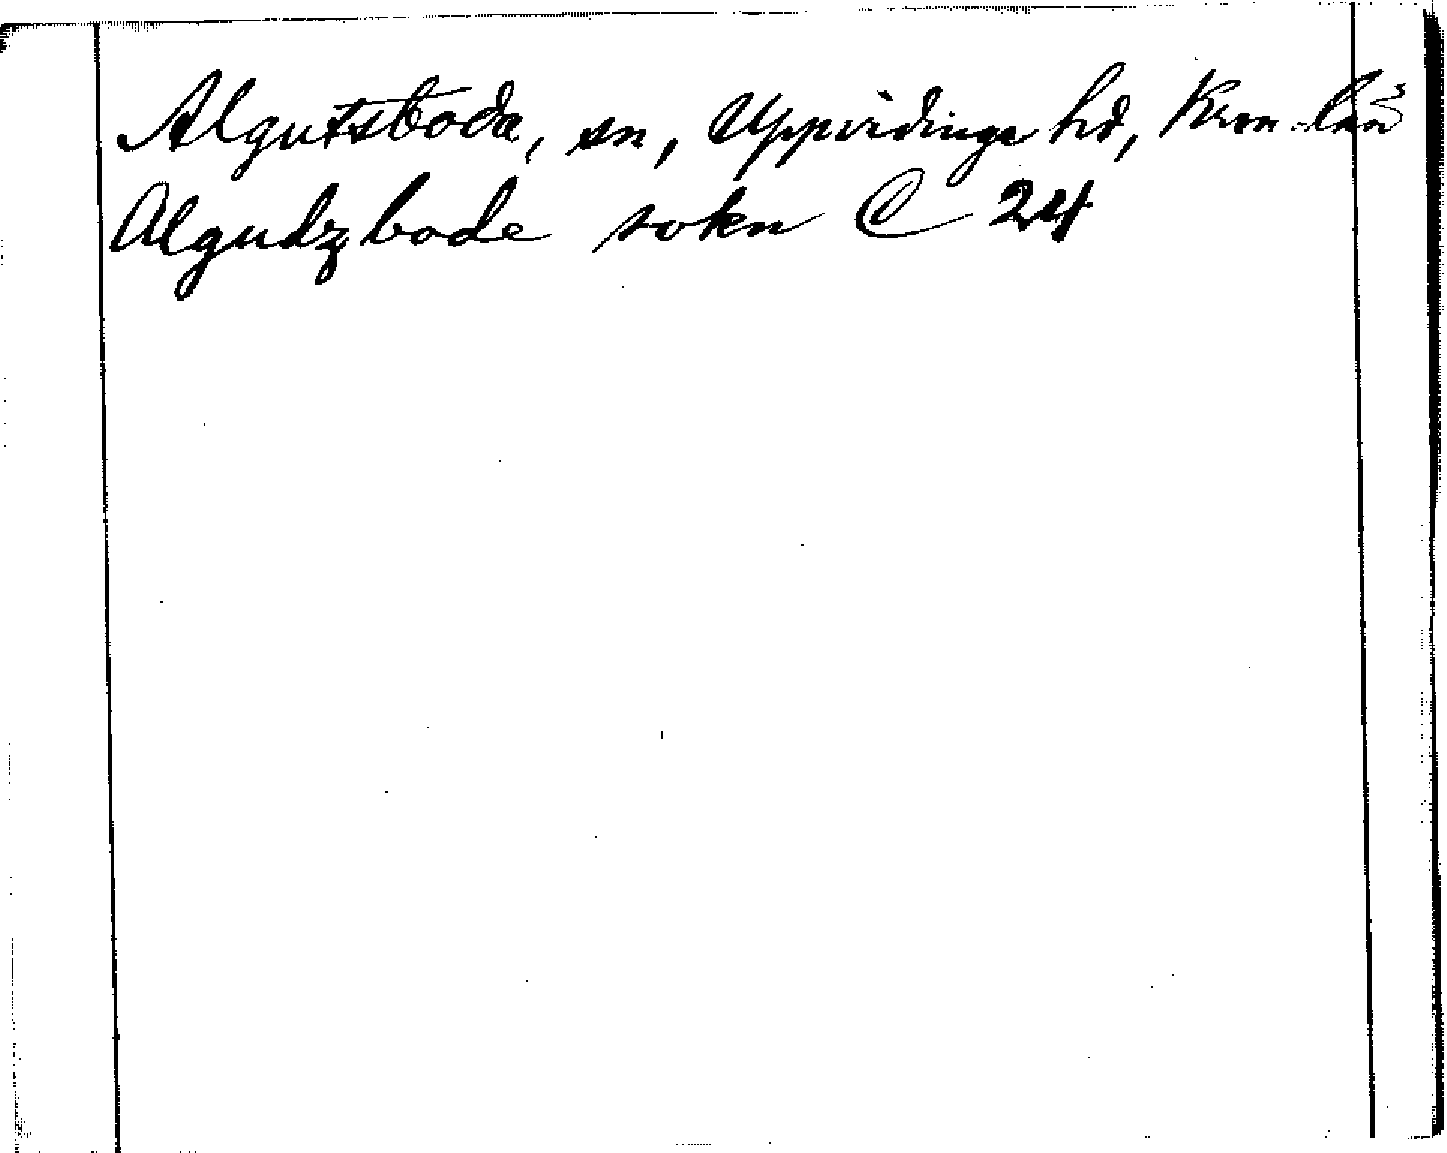 Algutsboda, sn, Uppvidinge hd, Kron. län
Algudzbode sokn C 24